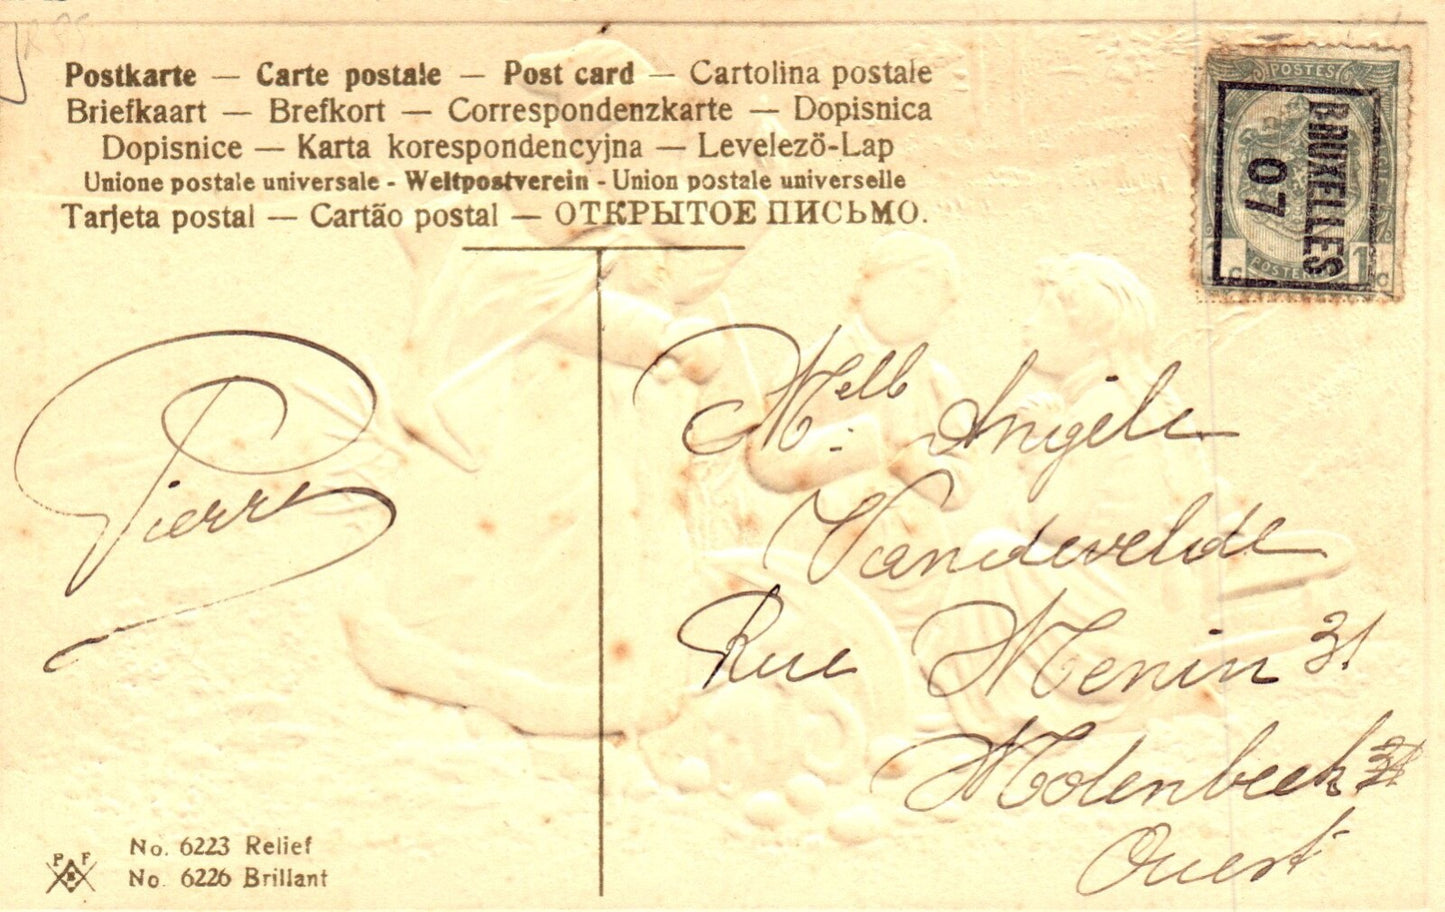 Postkarte — Carte postale — Post card — Cartolina postale
Briefkaart — Brefkort — Correspondenzkarte — Dopisnica
Dopisnice — Karta korespondencyjna — Levelezö-Lap
Unione postale universale - Weltpostverein - Union postale universelle
Tarjeta postal — Cartão postal — ОТКРЫТОЕ ПИСЬМО.
POSTES
BRUXELLES
07
1 c
Pierre
Melle Angèle
Vandevelde
Rue Menin 31
Molenbeek
Ouest
P F
B
No. 6223 Relief
No. 6226 Brillant